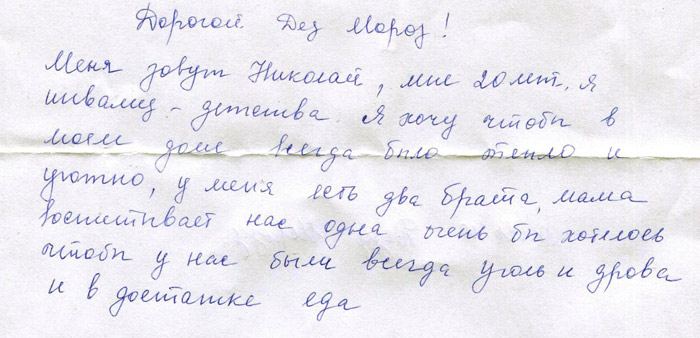 Дорогой Дед Мороз!
Меня зовут Николай, мне 20 лет. Я
инвалид - детства. Я хочу чтобы в
моем доме всегда было тепло и
уютно, у меня есть два брата, мама
воспитывает нас одна очень бы хотелось
чтобы у нас были всегда уголь и дрова
и в достатке еда